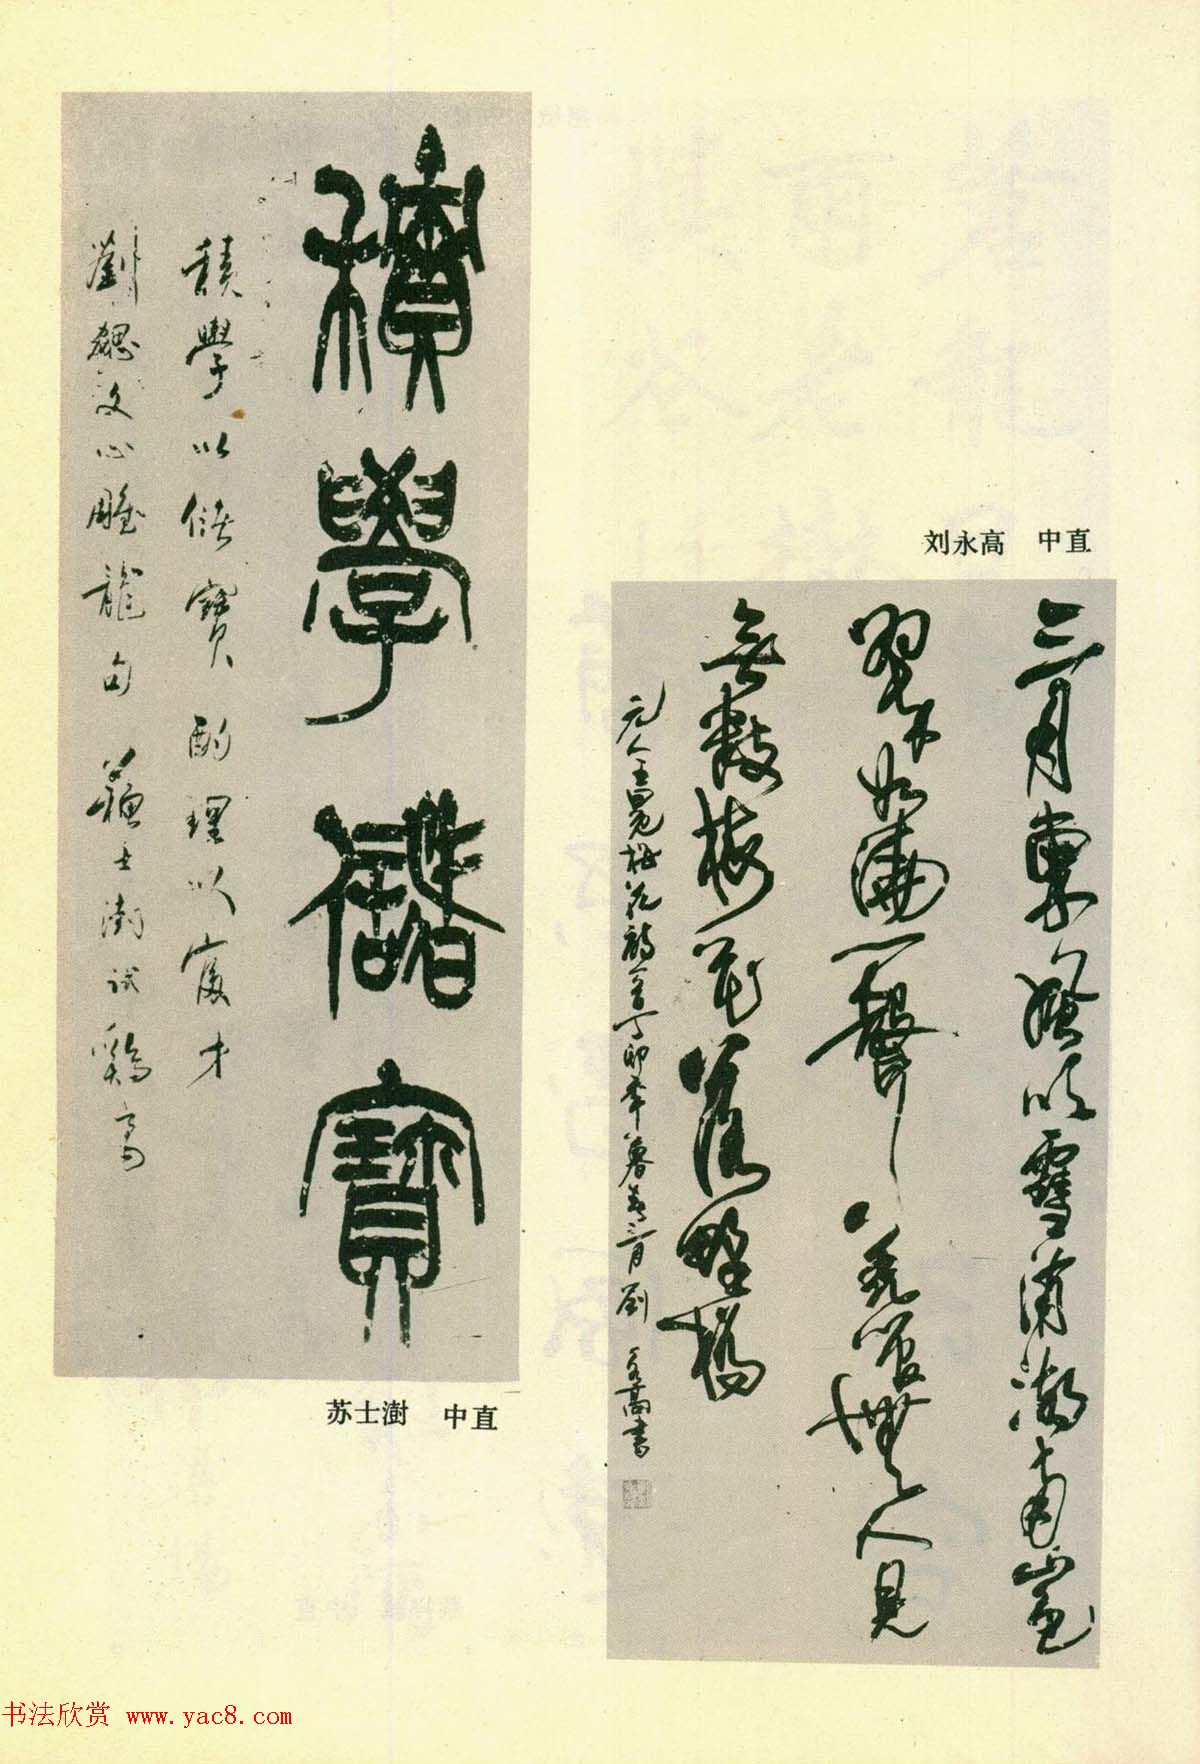 積學儲寶
積學以儲寶酌理以富才
劉勰文心雕龍句 蘇士澍試雞毫
苏士澍 中直
刘永高 中直
三月東風吹雪消湖南山色
翠如澆一聲羌管無人見
無數梅花落野橋
元人王冕梅花詩一首丁卯年暮春三月劉永高書
书法欣赏 www.yac8.com